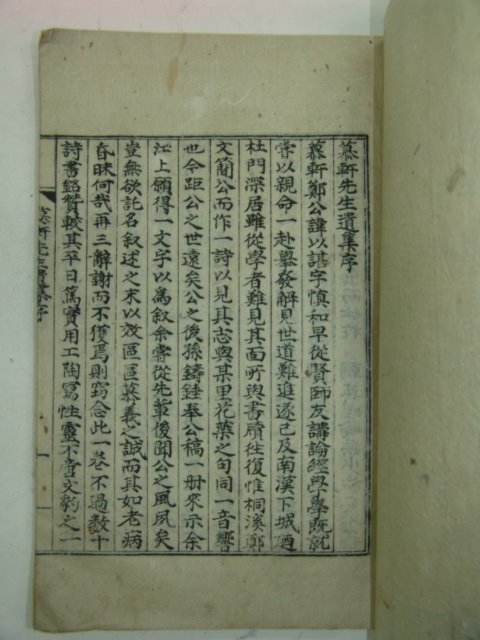 慕軒先生遺集序
慕軒鄭公諱以諶字愼和早從賢師友講論經學學旣就
嘗以親命一赴擧發解見世道難進遂已及南漢下城廼
杜門深居雖從學者難見其面所與書牘徃復惟桐溪鄭
文簡公而作一詩以見其志與某里花葉之句同一音響
也今距公之世遠矣公之後孫鑄錘奉公稿一冊來示余
江上願得一文字以爲叙余嘗從先輩後聞公之風夙矣
豈無欲託名叙述之末以效區區慕義之誠而其如老病
昏昧何哉再三辭謝而不獲焉則竊念此一卷不過數十
詩書銘贊較其平日篤實用工陶寫性靈不啻文豹之一
慕軒先生遺集序
一